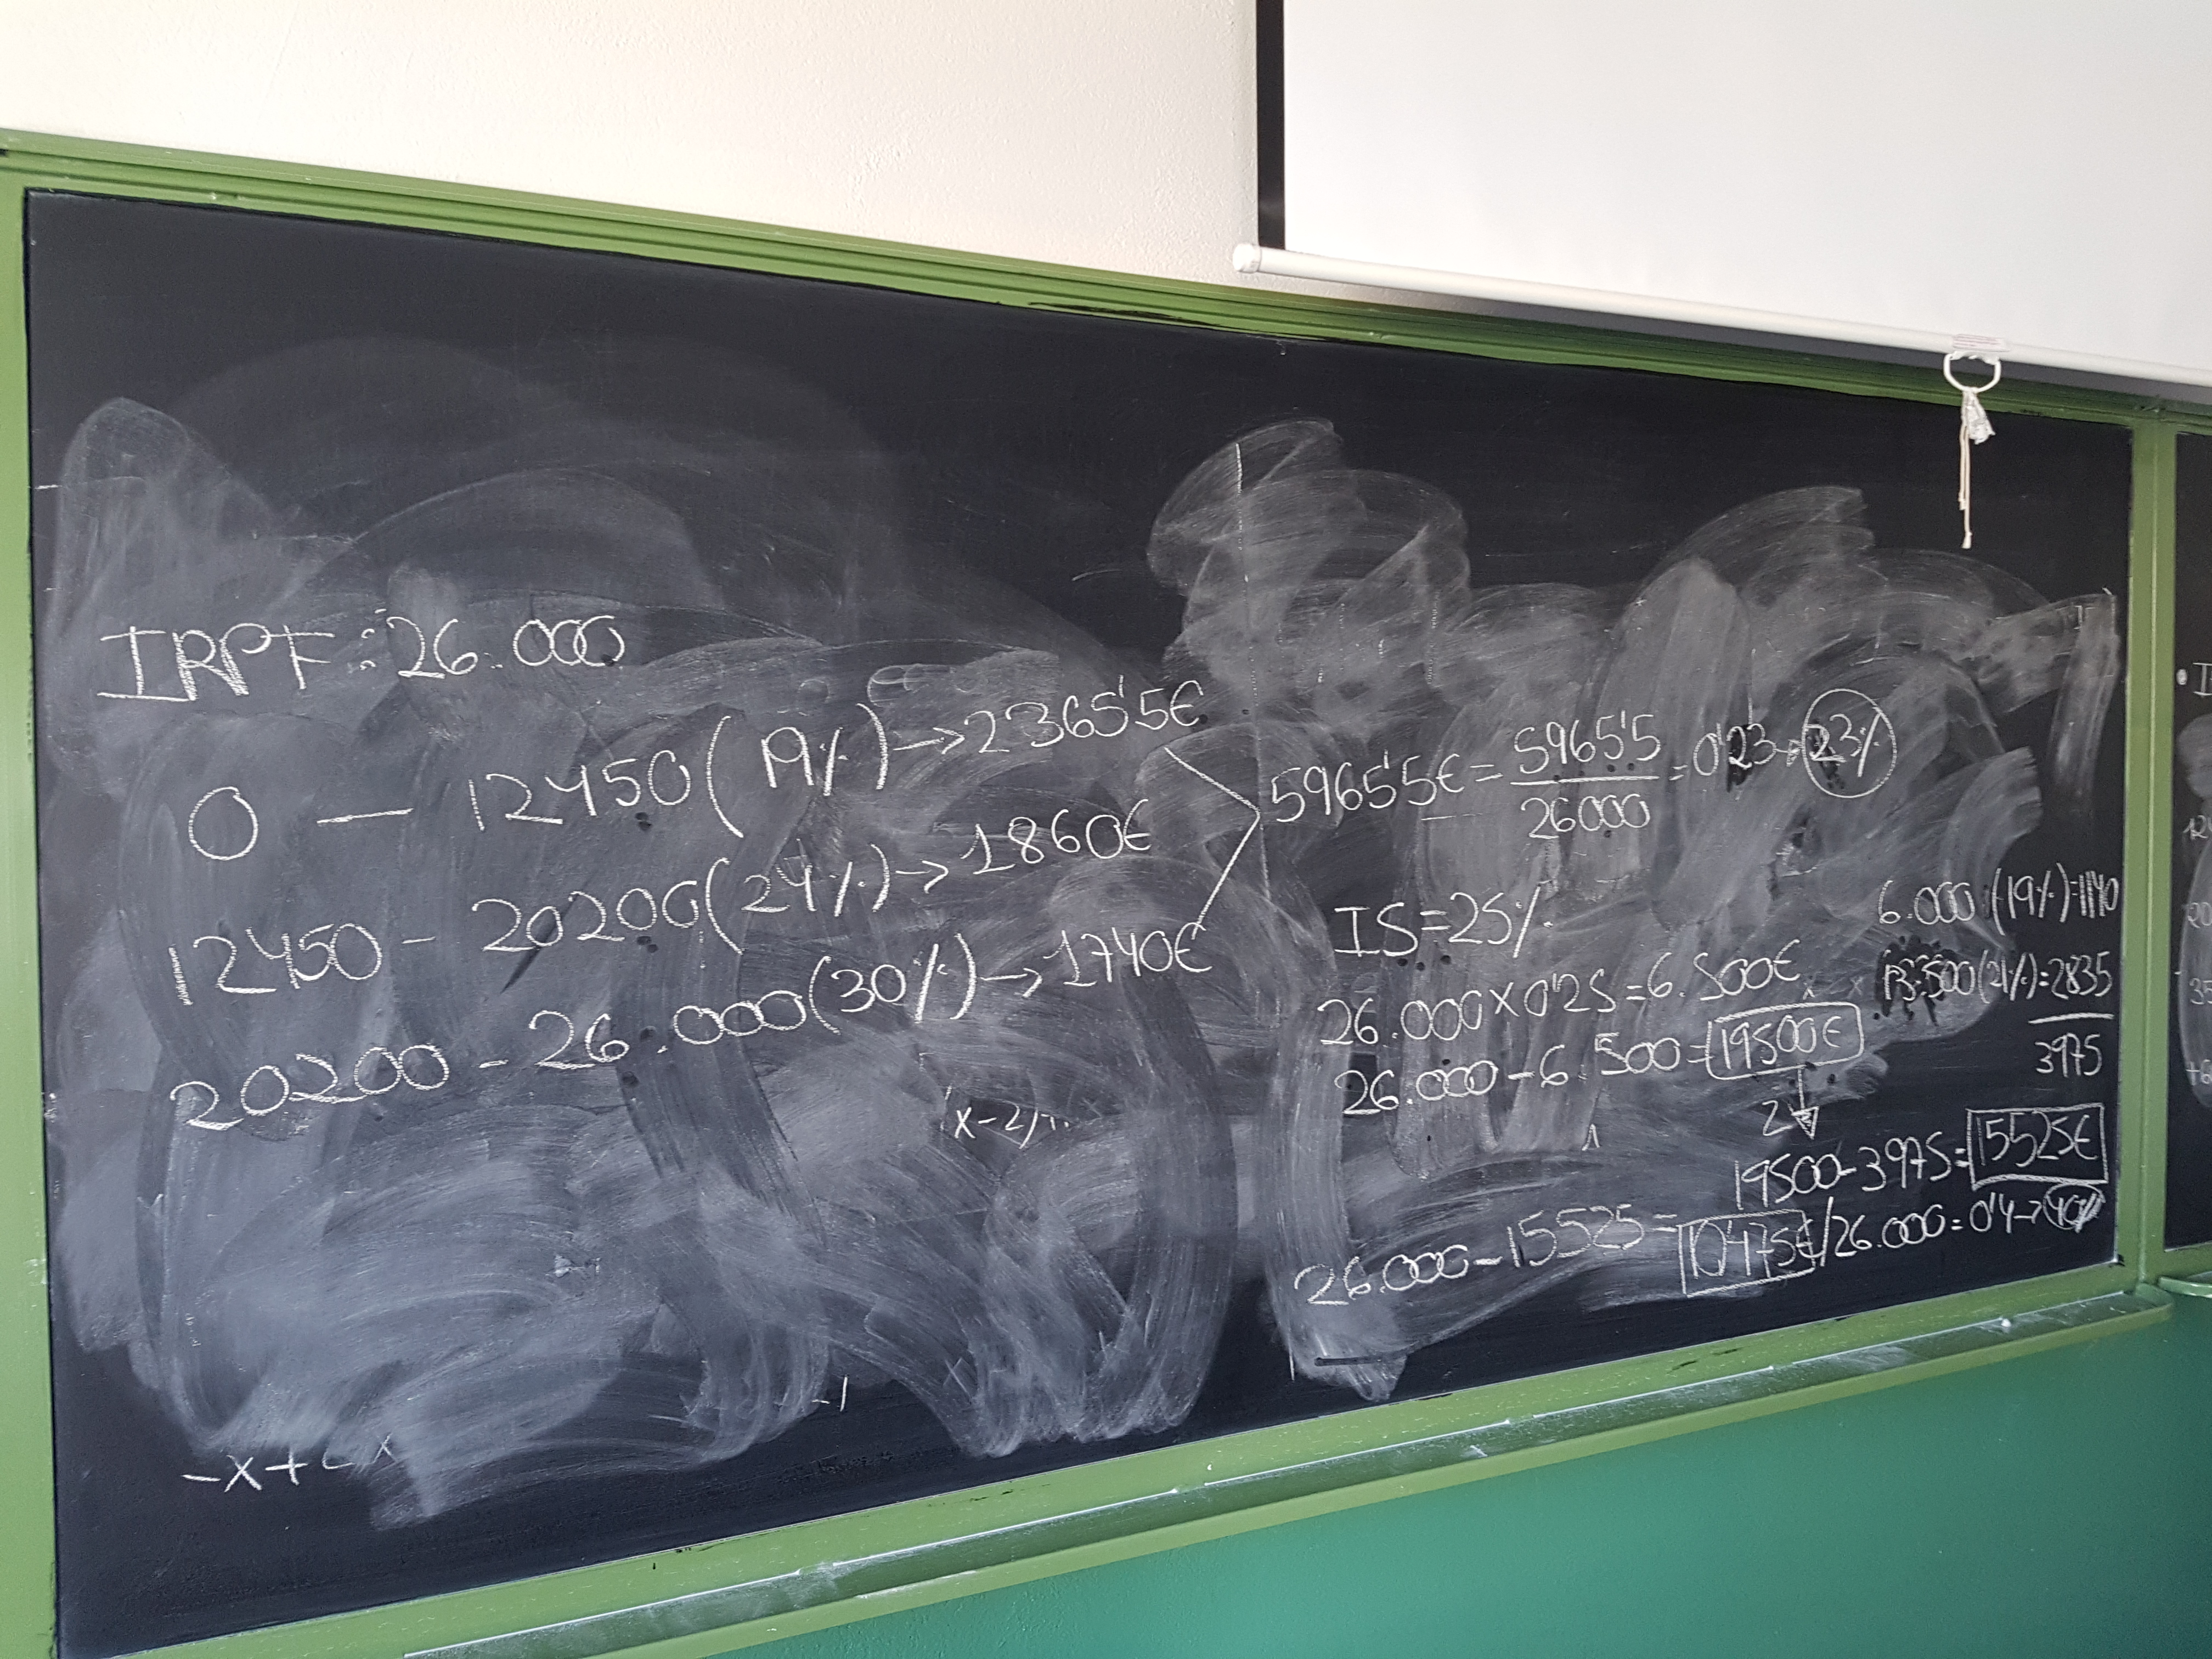 IRPF: 26.000
0 — 12450 (19%) → 2365'5€
12450 - 20200 (24%) → 1860€
20200 - 26.000 (30%) → 1740€
5965'5€ = 5965'5 / 26000 = 0'23 → 23%
IS = 25%
26.000 x 0'25 = 6.500€
26.000 - 6.500 = 19500€
6.000 (19%) = 1140
13.500 (21%) = 2835
3975
2
19500 - 3975 = 15525€
26.000 - 15525 = 10'475€ / 26.000 = 0'4 → 40%
(x-2)
-x+